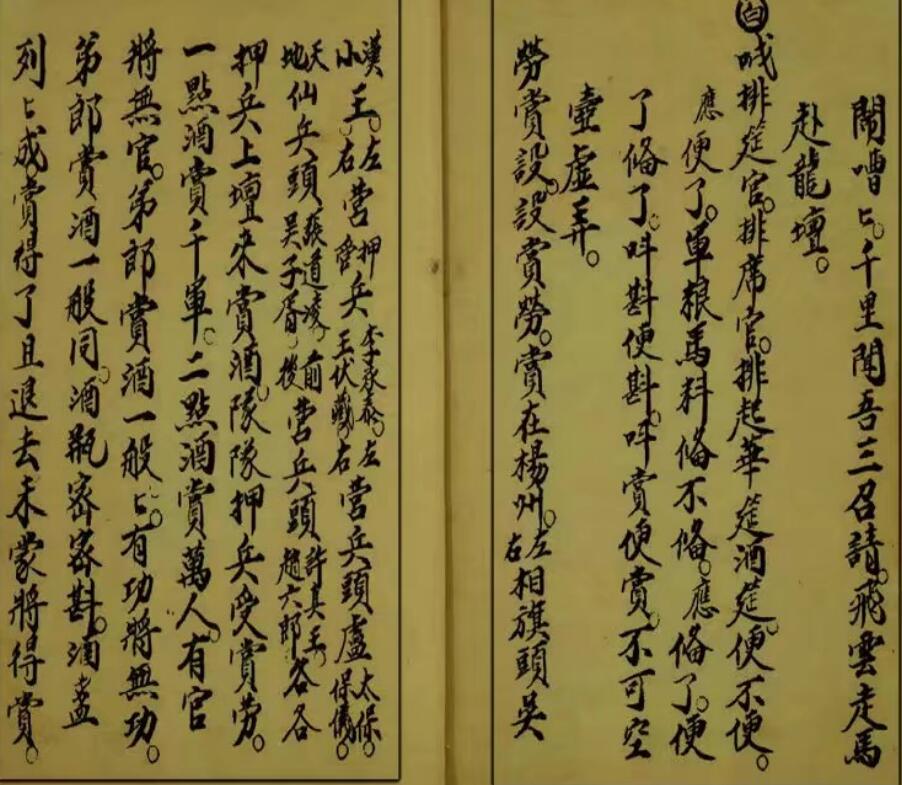 鬧嘈匕。千里聞吾三召請。飛雲走馬
赴龍壇。
白 喊排筵官。排席官。排起華筵酒筵。便不便。
應便了。軍粮馬料俻不俻。應俻了。便
了俻了。吽斟便斟。吽賞便賞。不可空
壺虛弄。
勞賞設。設賞勞。賞在楊州。左右相旗頭吳
漢小王。左右營押營兵李承泰。王伏藏。左右營兵頭盧太保。保儀。
天地仙兵頭張道陵。吳子胥。前後營兵頭許真王。趙六郎各各
押兵上壇來賞酒。隊隊押兵受賞勞。
一點酒賞千軍。二點酒賞萬人。有官
將無官。弟郎賞酒一般匕。有功將無功。
弟郎賞酒一般同。酒瓶密密斟。酒盞
列匕成。賞得了且退去未蒙將得賞。